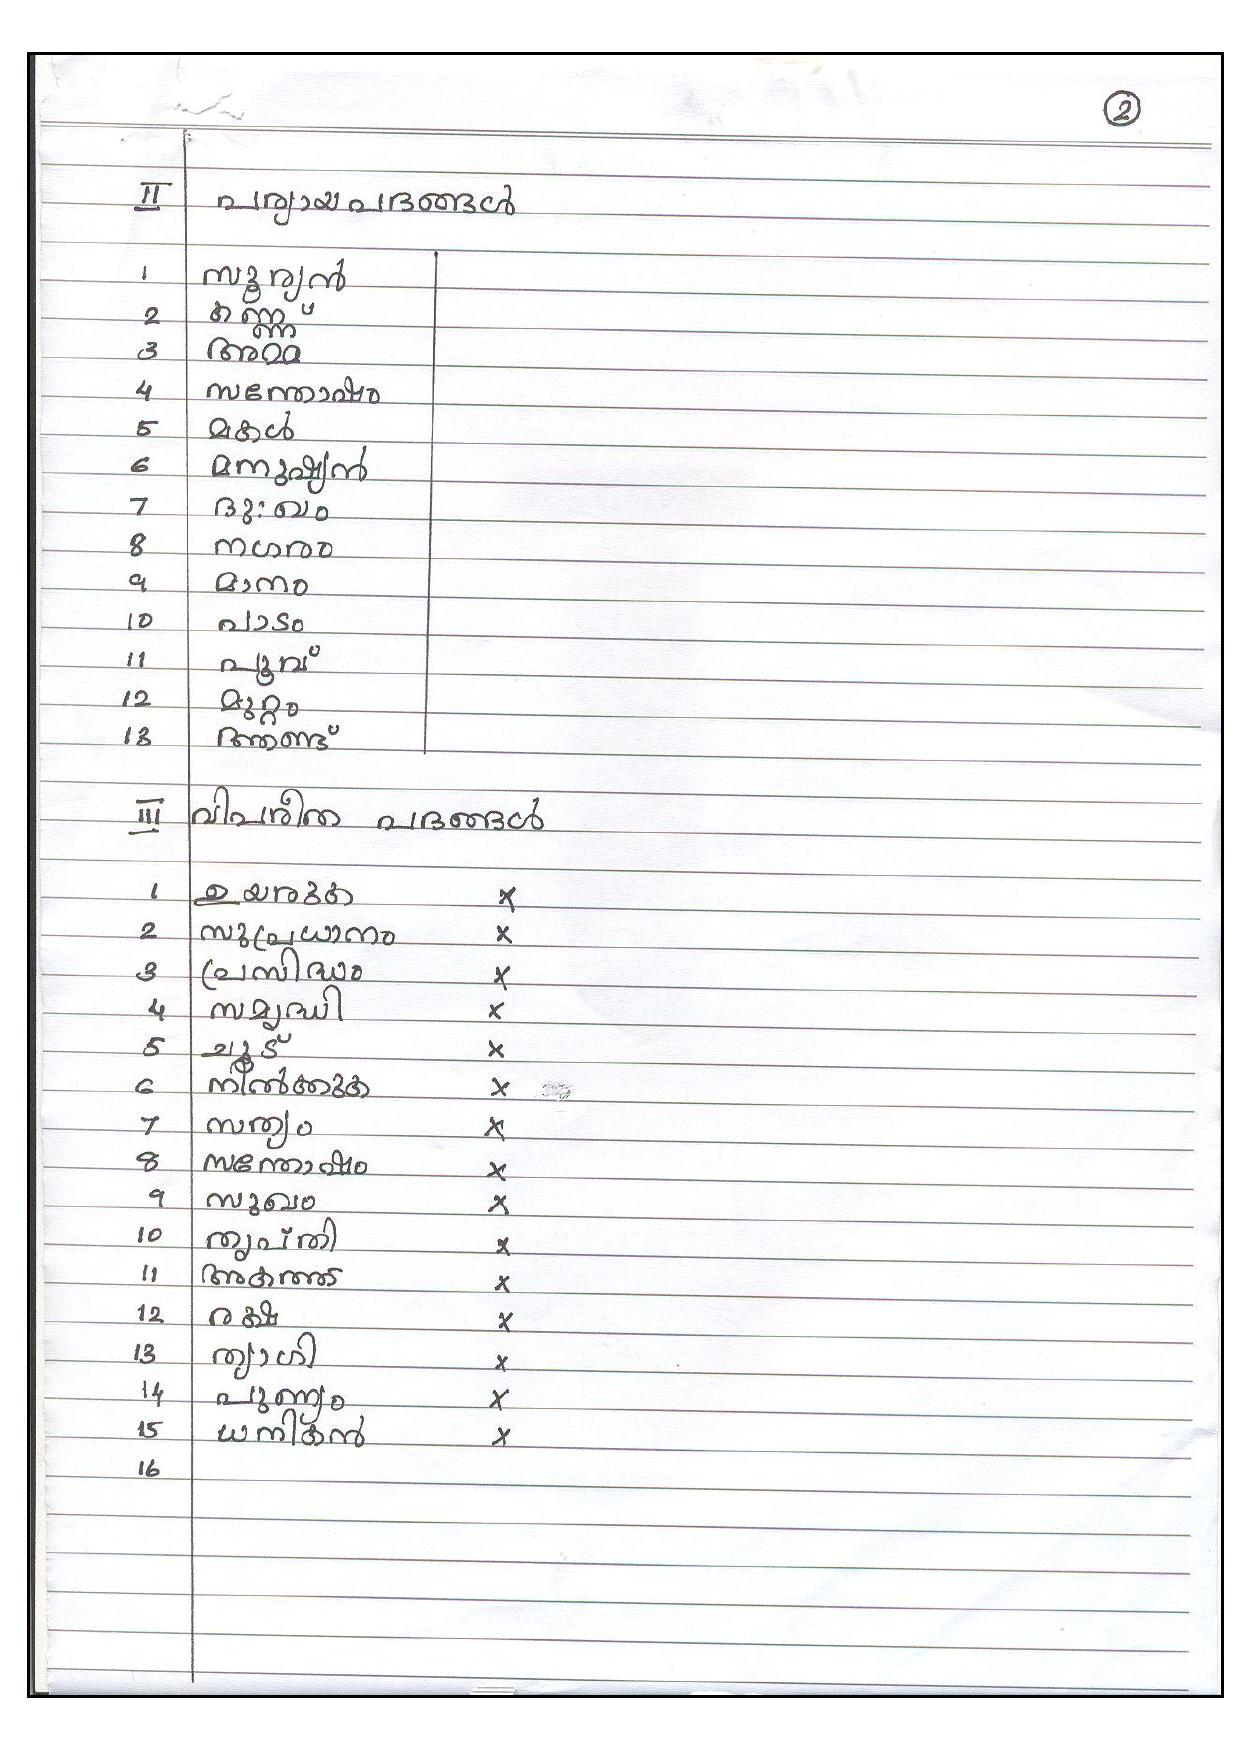 2
II പര്യായപദങ്ങൾ
1 സൂര്യൻ
2 കണ്ണ്
3 അമ്മ
4 സന്തോഷം
5 മകൾ
6 മനുഷ്യൻ
7 ദുഃഖം
8 നഗരം
9 മാനം
10 പാടം
11 പൂവ്
12 മുറ്റം
13
III വിപരീത പദങ്ങൾ
1 ഉയരുക ×
2 സുപ്രധാനം ×
3 പ്രസിദ്ധം ×
4 സമൃദ്ധി ×
5 ചൂട് ×
6 നിൽക്കുക ×
7 സത്യം ×
8 സന്തോഷം ×
9 സുഖം ×
10 തൃപ്തി ×
11 അകത്ത് ×
12 രക്ഷ ×
13 ത്യാഗി ×
14 പുണ്യം ×
15 ധനികൻ ×
16